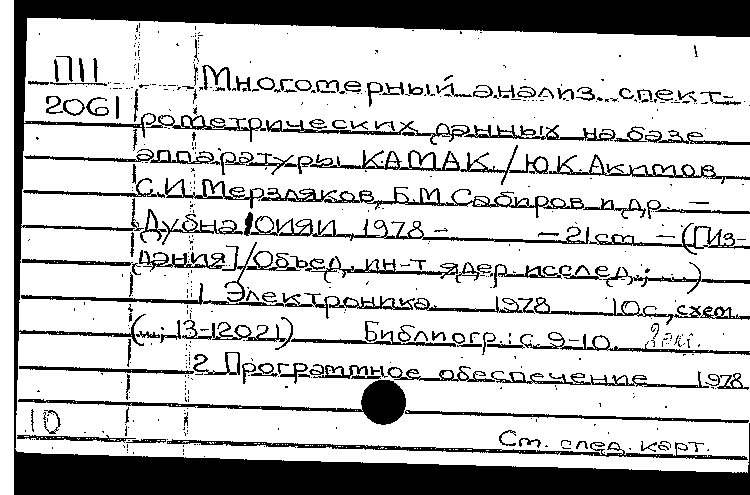 П11 Многомерный анализ спект-
2061 рометрических данных на базе
аппаратуры КАМАК. / Ю.К. Акимов,
С.И. Мерзляков, Б.М. Сабиров и др. –
Дубна: ОИЯИ, 1978 – – 21 cm. – ([Из-
дания] / Объед. ин-т ядер. исслед.; ...)
1. Электроника. 1978 10с., схем.
(...; 13-12021) Библиогр.: с. 9-10.
2 Программное обеспечение 1978
10 Ст. след. карт.